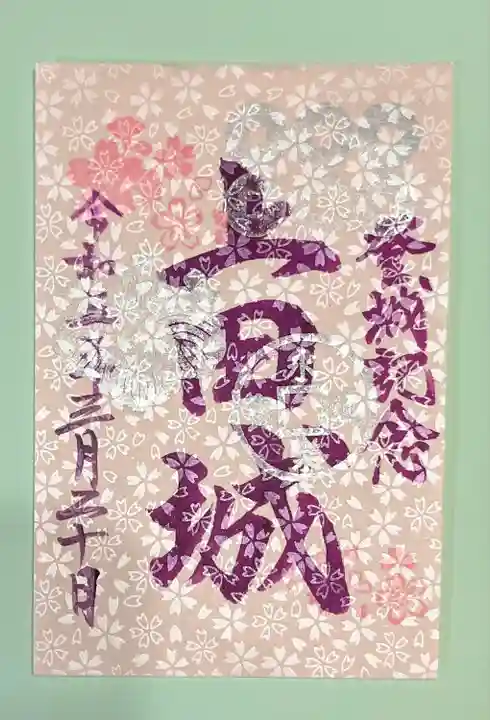 登城記念
上田城
令和五年三月三十日